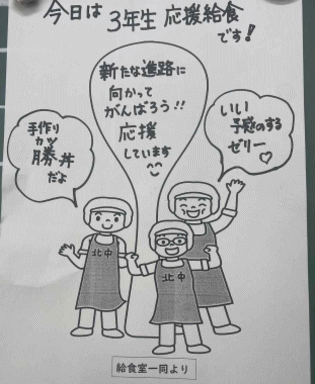 今日は 3年生 応援給食
です!
新たな進路に
向かって
がんばろう!!
応援
しています
手作り
カツ
勝丼
だよ
いい
予感のする
ゼリー♡
北中
北中
給食室一同より